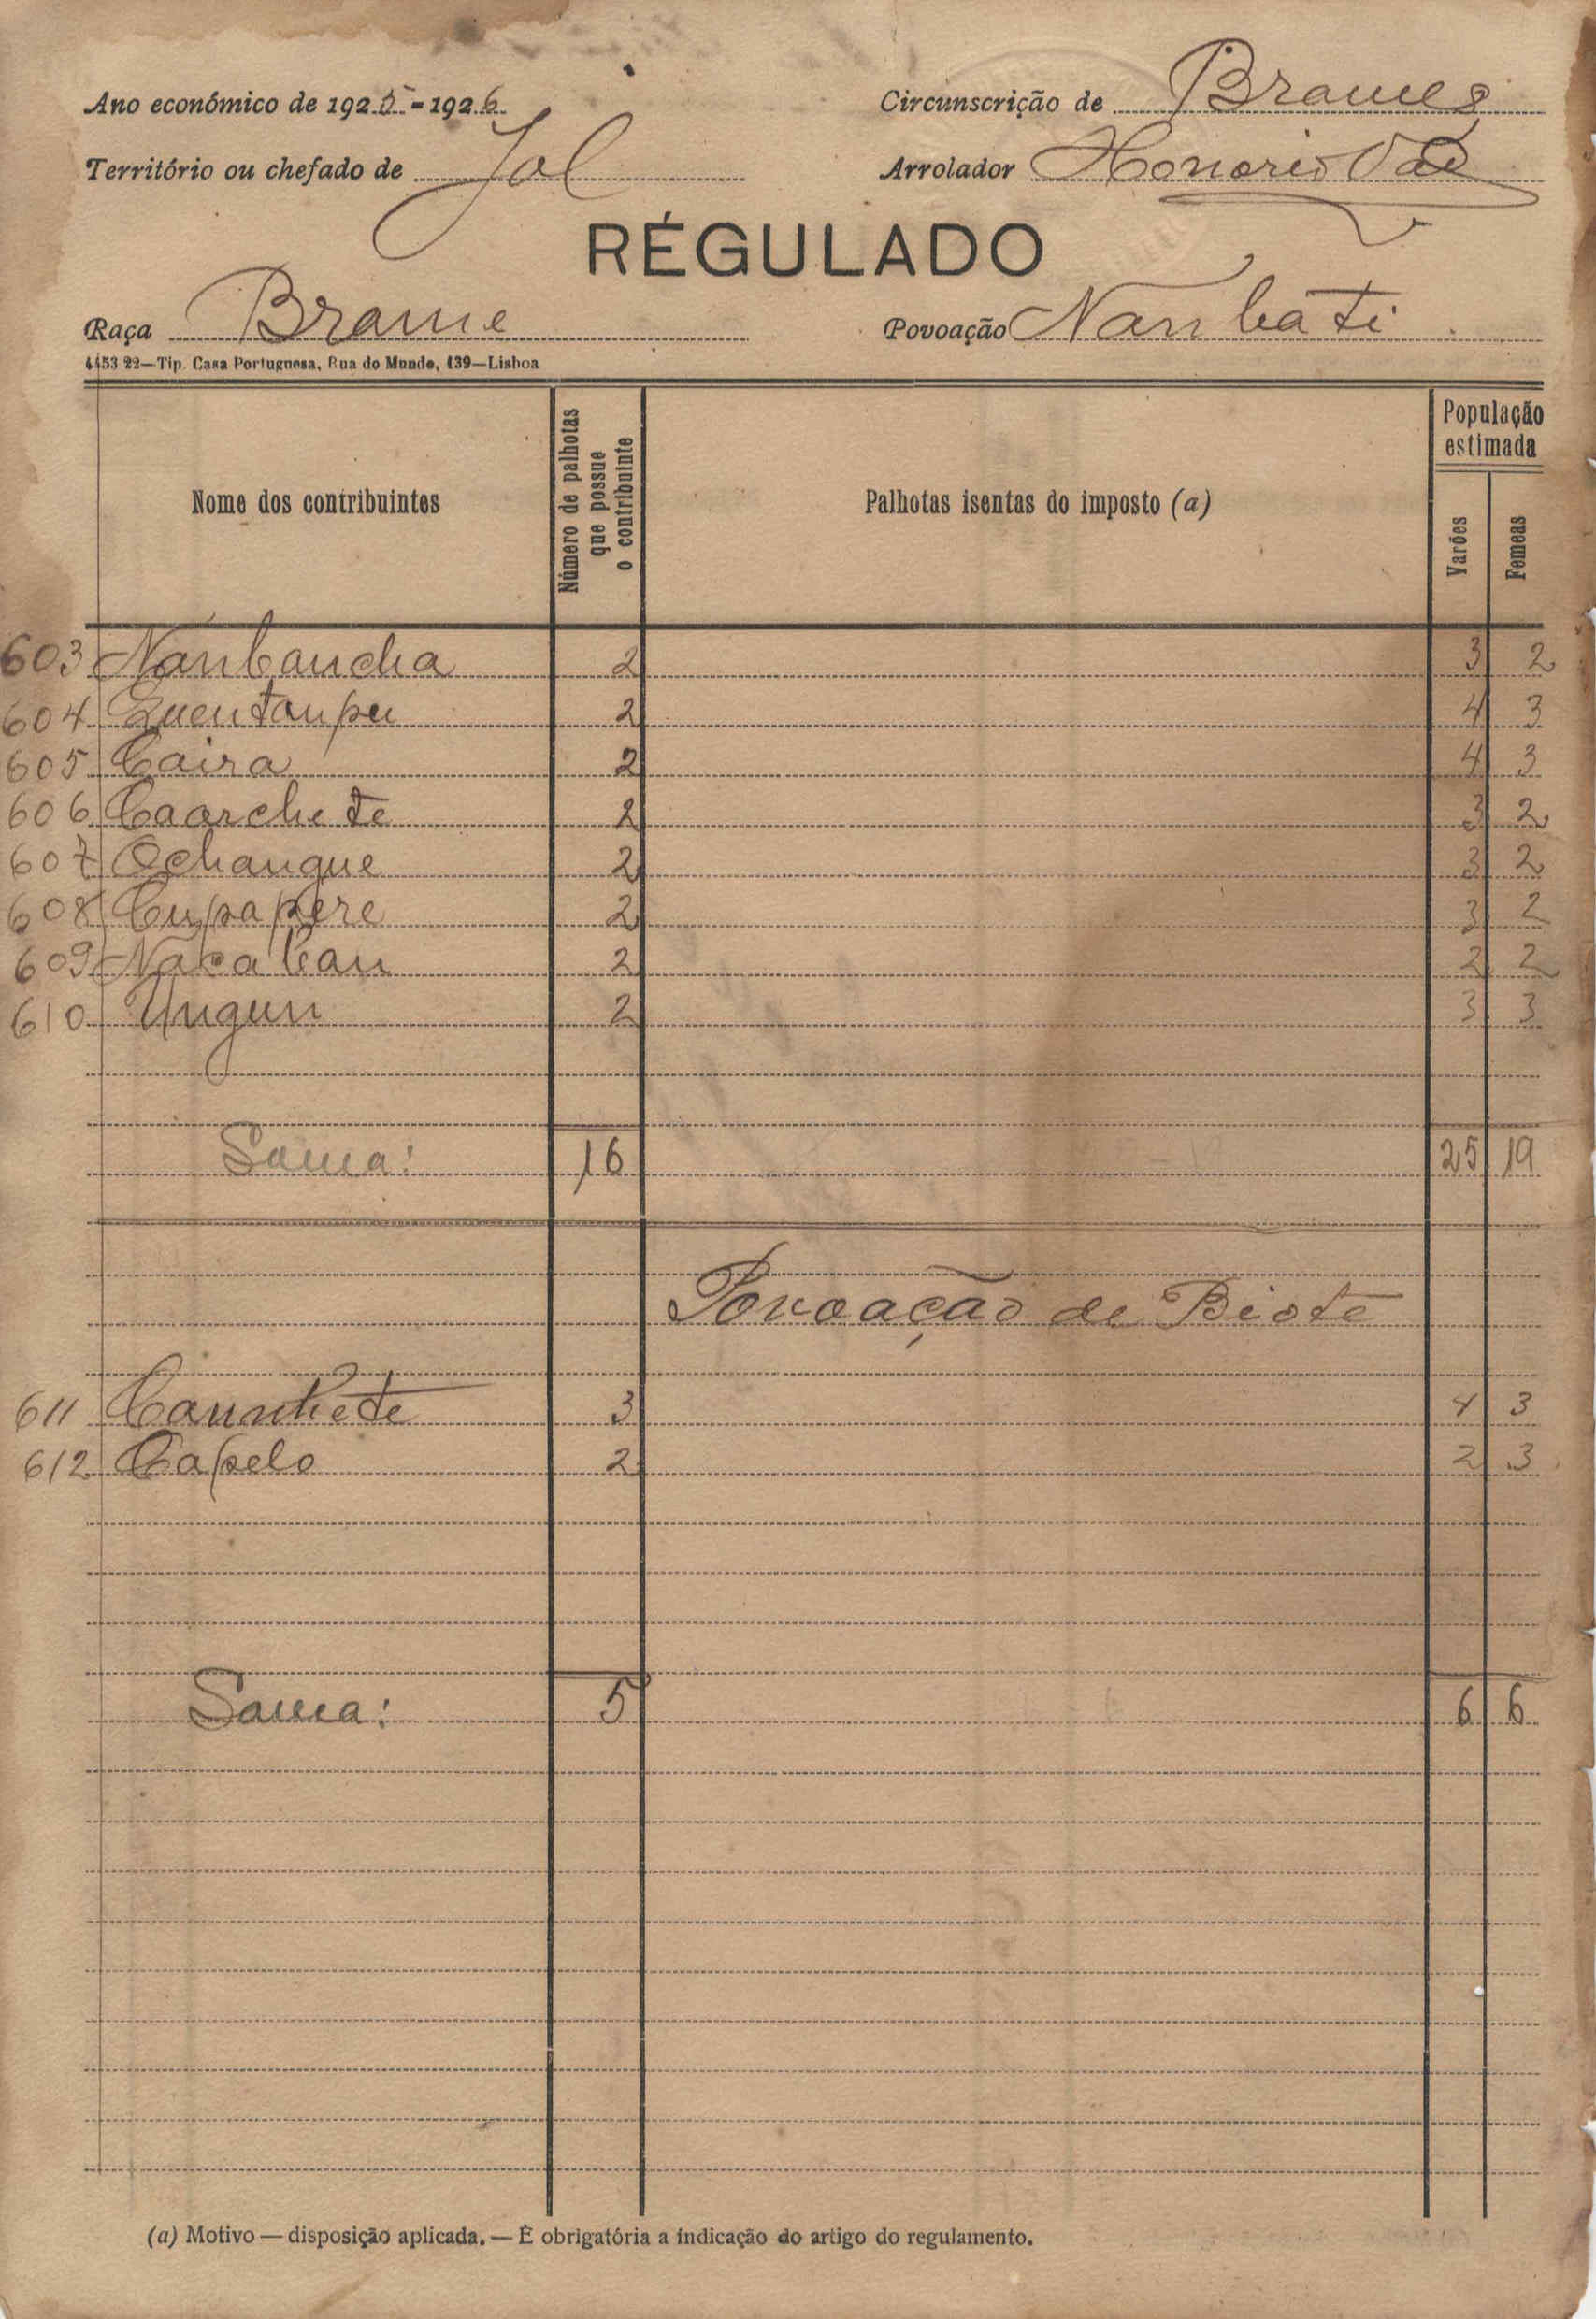 Ano económico de 1925-1926 Circunscrição de Brames
Território ou chefado de Jol Arrolador Honorio Vaz
RÉGULADO
Raça Brame Povoação Nanbati
4453 22—Tip. Casa Portuguesa, Rua do Mundo, 139—Lisboa
Nome dos contribuintes Número de palhotas que possue o contribuinte Palhotas isentas do imposto (a) População estimada Varões Femeas
603 Nanbancha 2 3 2
604 Quentanpu 2 4 3
605 Caira 2 4 3
606 Caarchete 2 3 2
607 Ochangue 2 3 2
608 Cupapere 2 3 2
609 Nacaban 2 2 2
610 Ungun 2 3 3
Soma: 16 25 19
Povoação de Biote
611 3 4 3
612 Capelo 2 2 3
Soma: 5 6 6
(a) Motivo — disposição aplicada. — É obrigatória a indicação do artigo do regulamento.